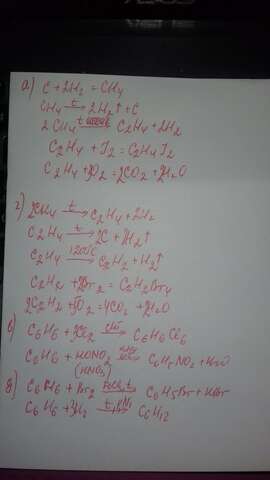 а) C + 2H2 = CH4
CH4 t→ 2H2↑ + C
2 CH4 t→ C2H4 + 2H2
C2H4 + I2 = C2H4I2
C2H4 + 3O2 = 2CO2 + 2H2O
2) 2CH4 t→ C2H4 + 2H2
C2H4 t→ 2C + 2H2↑
C2H4 1200C→ C2H2 + H2↑
C2H2 + 2Br2 = C2H2Br4
2C2H2 + 5O2 = 4CO2 + 2H2O
в) C6H6 + 3Cl2 → C6H6Cl6
C6H6 + HONO2 → C6H5NO2 + H2O
(HNO3)
д) C6H6 + Br2 FeCl3, t→ C6H5Br + HBr
C6H6 + 3H2 t, p, Ni→ C6H12